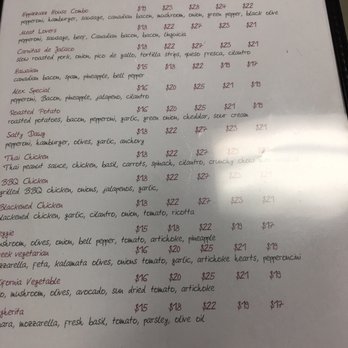 House Combo $19 $23 $28 $24 $22
pepperoni, hamburger, sausage, canadian bacon, mushroom, onion, green pepper, black olive
Meat Lovers $18 $22 $27 $23 $21
pepperoni, sausage, beef, Canadian bacon, bacon, linguica
Carnitas de Jalisco $18 $22 $27 $23 $21
slow roasted pork, onion, pico de gallo, tortilla strips, queso fresca, cilantro
Hawaiian $15 $18 $22 $19 $17
canadian bacon, spam, pineapple, bell pepper
Alex Special $16 $20 $25 $21 $19
pepperoni, Bacon, pineapple, jalapeno, cilantro
Roasted Potato $16 $20 $25 $21 $19
roasted potatoes, bacon, pepperoni, garlic, green onion, cheddar, sour cream
Salty Dawg $18 $22 $27 $23 $21
pepperoni, hamburger, olives, garlic, anchovy
Thai Chicken $18 $22 $27 $23 $21
Thai peanut sauce, chicken, basil, carrots, spinach, cilantro, crunchy
BBQ Chicken $18 $22 $27 $23 $21
grilled BBQ chicken, onions, jalapenos, garlic,
Blackened Chicken $18 $22 $27 $23 $21
blackened chicken, garlic, cilantro, onion, tomato, ricotta
ggie $15 $18 $22 $19 $17
shroom, olives, onion, bell pepper, tomato, artichoke, pineapple
reek vegetarian $16 $20 $25 $21 $19
zzarella, feta, kalamata olives, onions tomato, garlic, artichoke hearts, pepperoncini
ifornia Vegetable $16 $20 $25 $21 $19
o, mushroom, olives, avocado, sun dried tomato, artichoke
gherita $15 $18 $22 $19 $17
nara, mozzarella, fresh basil, tomato, parsley, olive oil